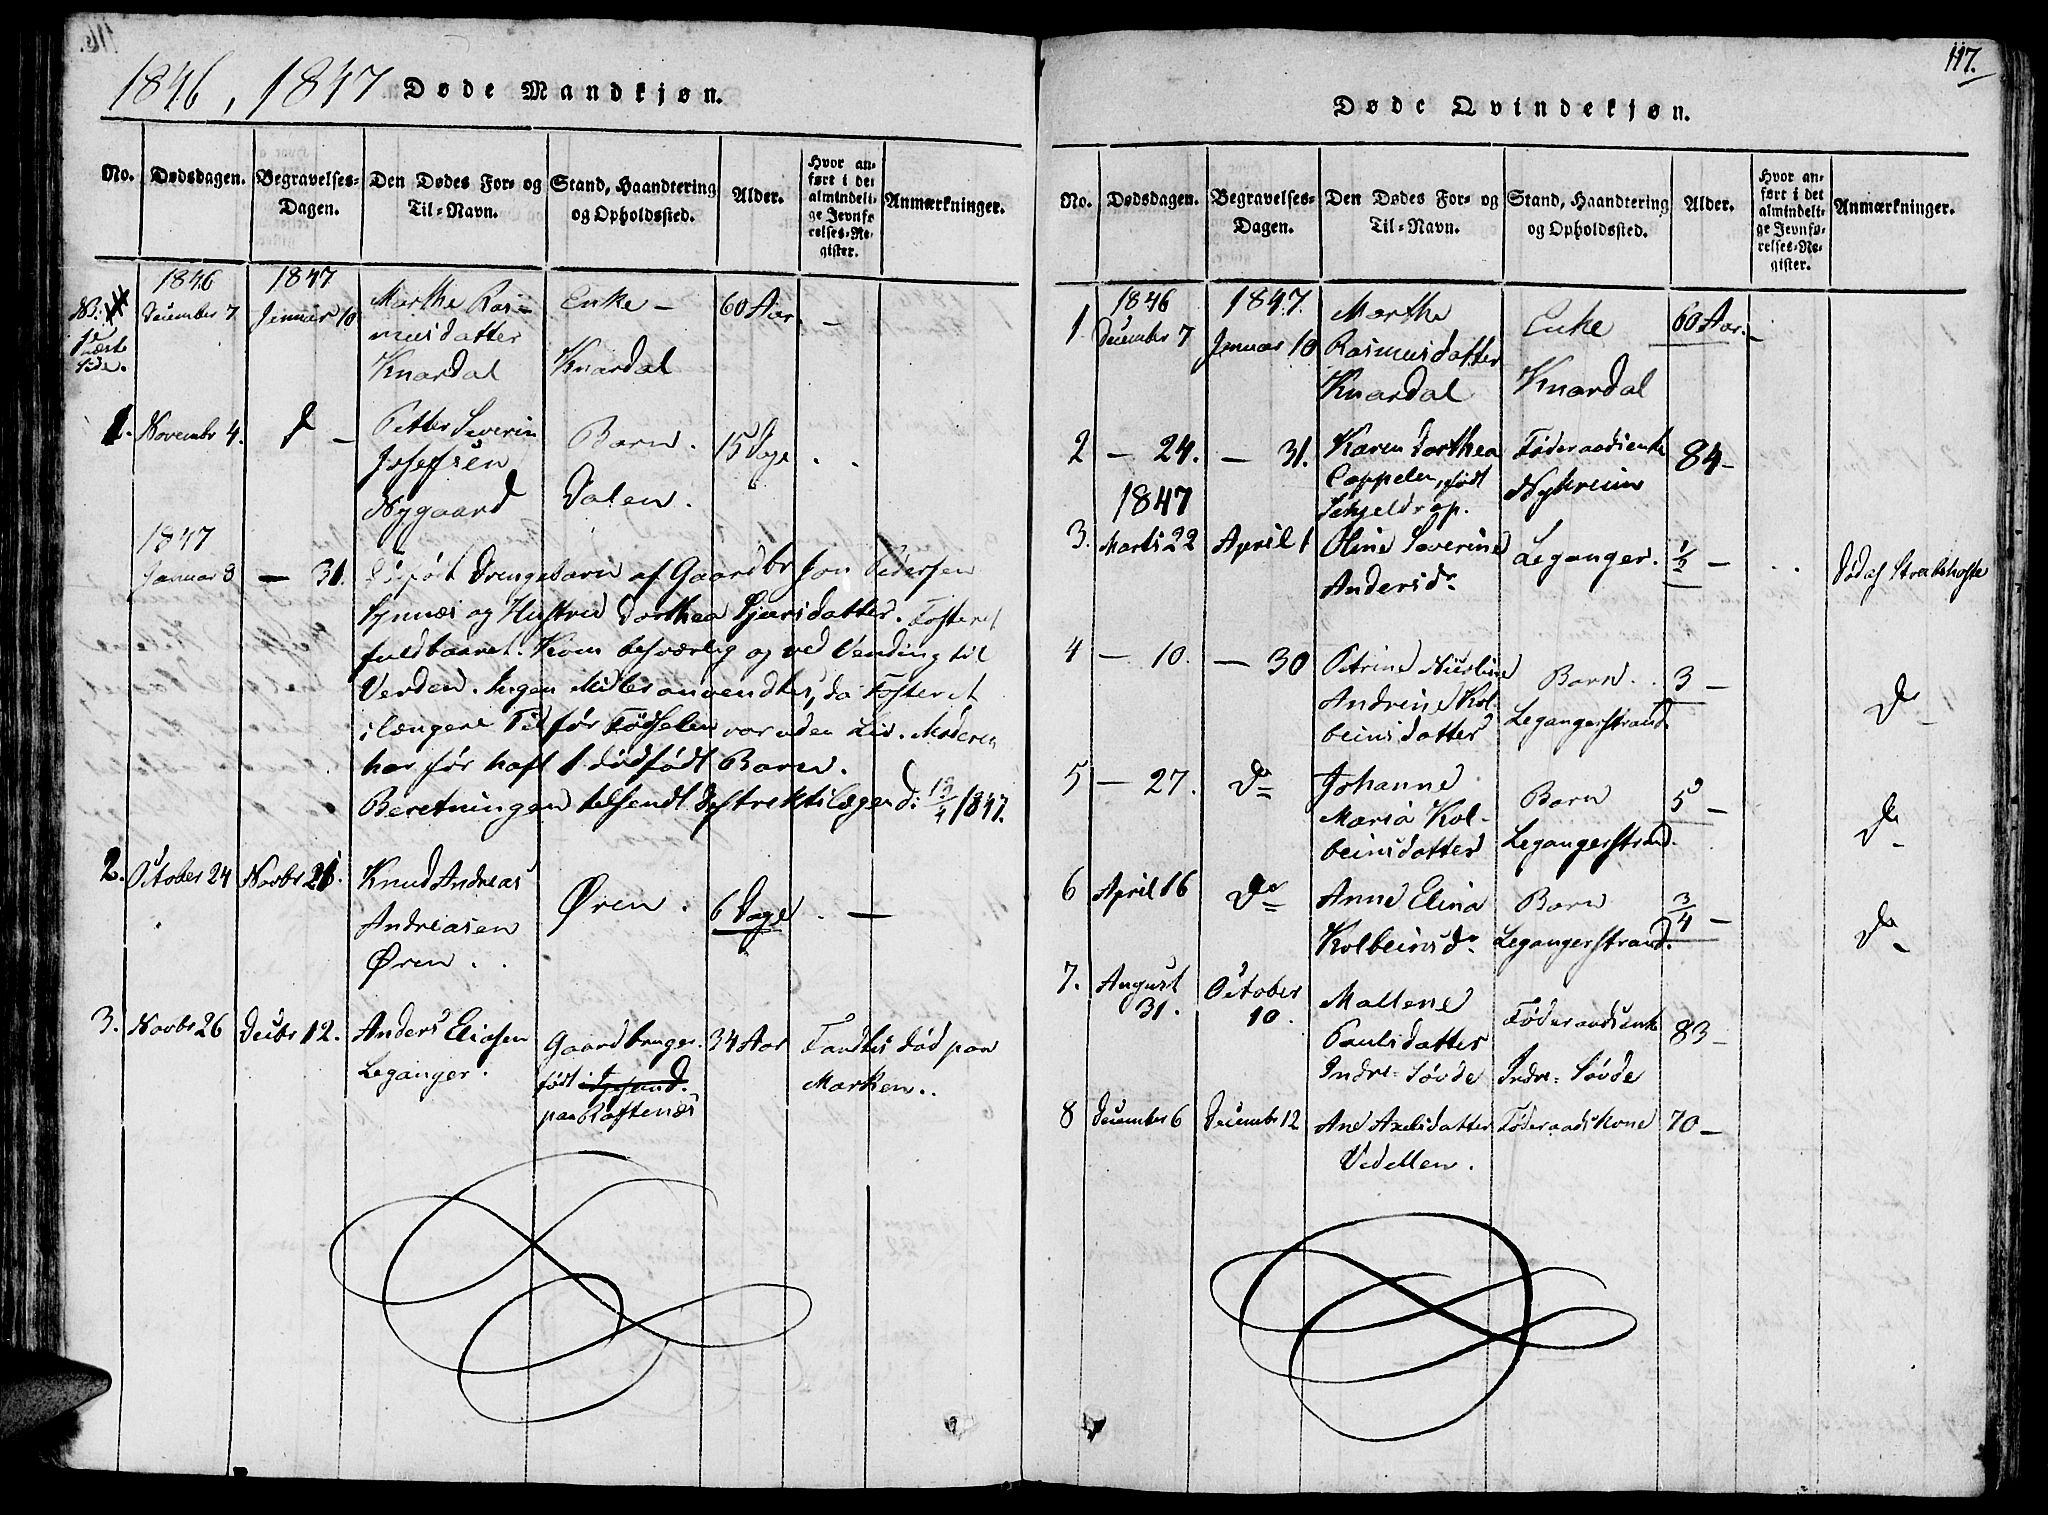 1846, 1847 Døde Mandkjøn.
No. Dødsdagen. Begravelses-Dagen. Den Dødes For- og Til-Navn. Stand, Haandtering og Opholdssted. Alder. Hvor anført i det almindelige Jevnførelses-Register. Anmærkninger.
1846 1847
NB. Decembr 7 Januar 10 Marthe Ras- Enke - 60 Aar. -
næste musdatter
Side. Knardal Knardal
1. Novembr 4. d - Petter Severin Barn. 15 Dage . .
Josefsen
Nygaard Dalen.
1847
Januar 8 - 31. Dødfødt Drengebarn af Gaardbr Jon Pedersen
Synnæs og Hustru Dorthea Sjursdatter. Fosteret
fuldbaaret. Kom besværlig og ved Vending til
Verden. Ingen Midler anvendtes, da Fosteret
i længere Tid før Fødselen var uden Liv. Moderen
har før haft 1 dødfødt Barn.
Beretningen tilsendt Distriktslægen d: 19/4 1847.
2. October 24 Novbr 21. Knud Andreas Øren. 6 Dage . -
Andreasen
Øren . .
3. Novbr 26 Decbr 12. Anders Eliasen Gaardbruger. 34 Aar Fandtes død paa
Leganger. født i Marken..
paa Raftenæs
117.
Døde Qvindekjøn.
No. Dødsdagen. Begravelses-Dagen. Den Dødes For- og Til-Navn. Stand, Haandtering og Opholdssted. Alder. Hvor anført i det almindelige Jevnførelses-Register. Anmærkninger.
1846 1847.
1 December 7 Januar 10 Marthe Enke 60 Aar. -
Rasmusdatter
Knardal Knardal
2 - 24. - 31. Karen Dorthea Føderaadsenke 84 -
Cappelen, født Nykreim
Schjeldrop.
1847
3. Marts 22 April 1 Oline Severine Leganger. 1/2 - . . Død af Strubehoste
Andersdr
4 - 10. - 30 Petrine Nicoline Barn . . 3 - do -
Andrine Kol-
beinsdatter Legangerstrand.
5 - 27. do = Johanne Barn 5 - do -
Maria Kol-
beinsdatter Legangerstrand.
6 April 16 do = Anne Elina Barn 3/4 - do -
Kolbeinsdr Legangerstrand.
7. August October Maltene Føderaadsenke 83 -
31. 10. Paulsdatter
Indre = Søvde Indre = Søvde
8 December 6 Decembr 12 Ane Axelsdatter Føderaadskone 70 -
Vedellen.